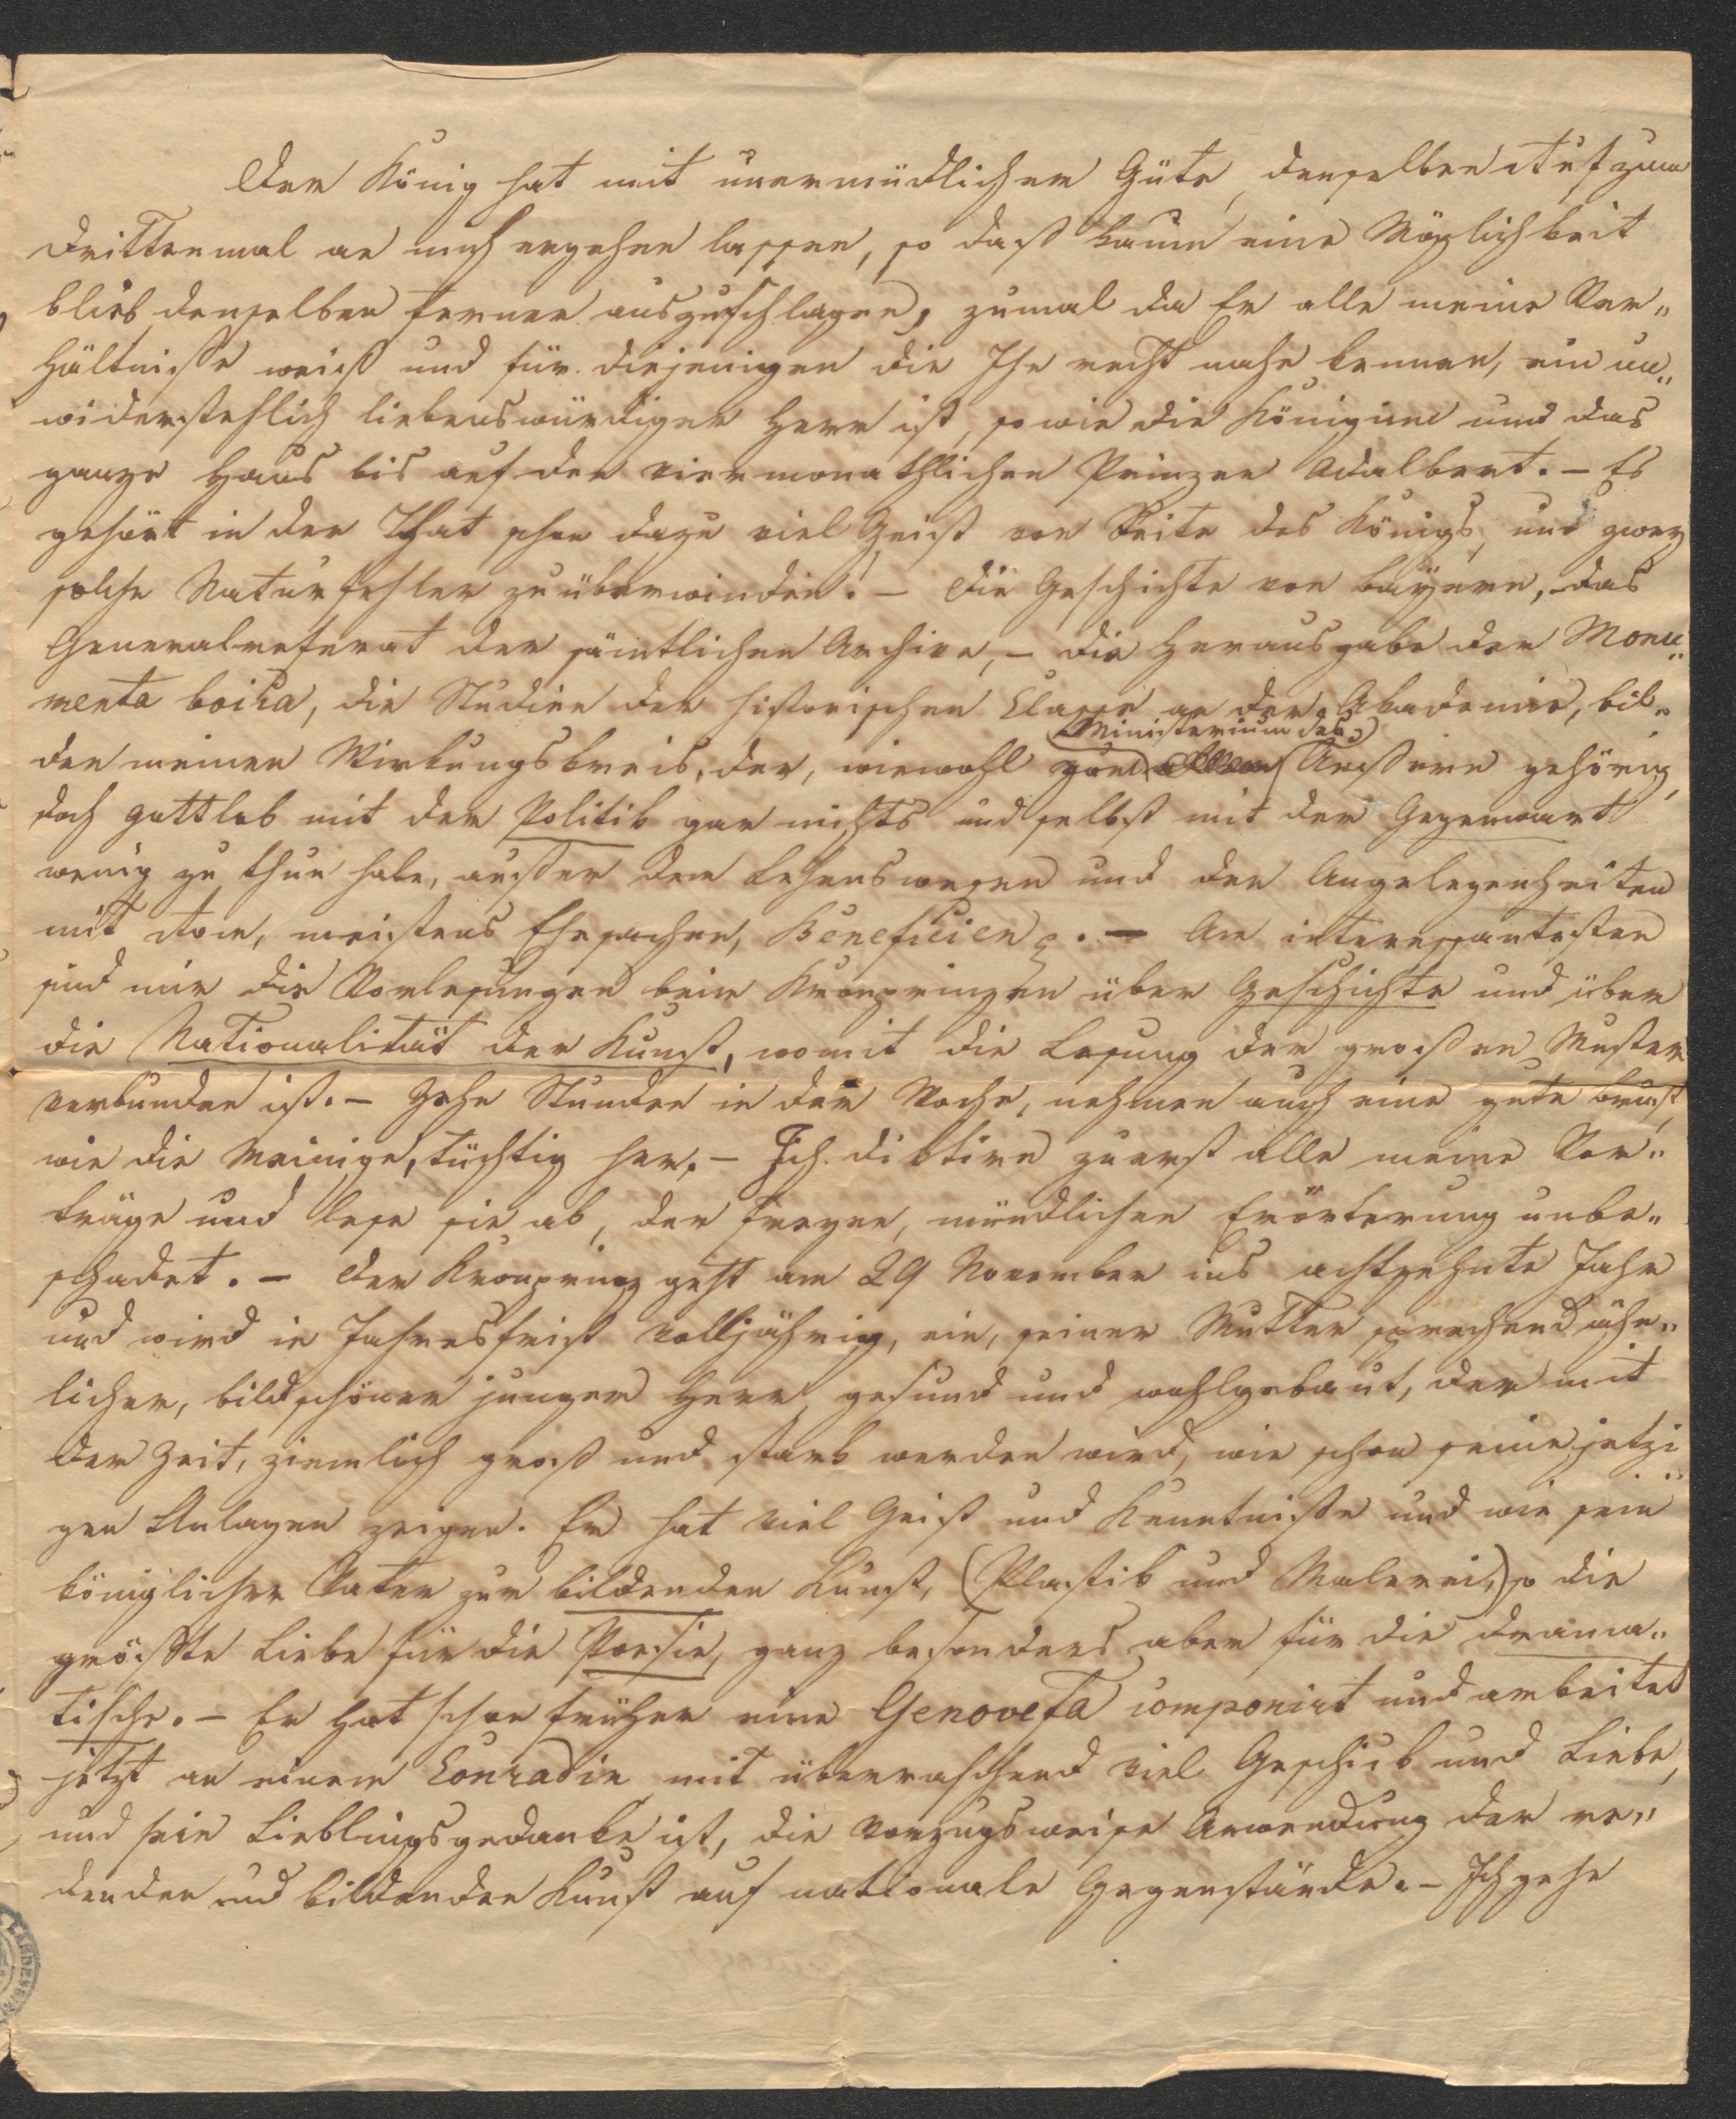 Der König hat mit unermüdlicher Güte, denselben Ruf zum
drittenmal an mich ergehen lassen, so daß kaum eine Möglichkeit
blieb denselben ferner auszuschlagen, zumal da Er alle meine Ver„
hältnisse weiß und für diejenigen die Ihn recht nahe kennen, ein un„
widerstehlich liebenswürdiger Herr ist, so wie die Königinn und das
ganze Haus bis auf den viermonathlichen Prinzen Adalbert. – Es
gehört in der That schon dazu viel Geist von Seite des Königs, und zwey
solche Naturfehler zu überwinden. – Die Geschichte von Bayern, das
Generalreferat der sämtlichen Archive, – die Herausgabe der Monu„
menta boica, die Studien der historischen Classe an der Akademie, bil„
den meinen Wirkungskreis, der, wiewohl zum
Ministerium des
Äussern gehörig,
doch gottlob mit der Politik gar nichts und selbst mit der Gegenwart
wenig zu thun habe, ausser dem Lehenswesen und den Angelegenheiten
mit Rom, meistens Ehesachen, Beneficien. – Am interessantesten
sind mir die Vorlesungen beim Kronprinzen über Geschichte und über
die Nationalität der Kunst, womit die Lesung der großen Muster
verbunden ist. – Zehn Stunden in der Woche, nehmen auch eine gute Brust,
wie die Meinige, tüchtig her. – Ich diktire zuerst alle meine Vor„
träge und lese sie ab, der freyen, mündlichen Erörterung unbe„
schadet. – Der Kronprinz geht am 29 November ins achtzehnte Jahr
und wird in Jahresfrist volljährig, ein, seiner Mutter sprechend ähn„
licher, bildschöner junger Herr, gesund und wohlgebaut, der mit
der Zeit, ziemlich groß und stark werden wird, wie schon seine jetzi„
gen Anlagen zeigen. Er hat viel Geist und Kenntnisse und wie sein
königlicher Vater zur bildenden Kunst, (Plastik und Malerei,) so die
größte Liebe für die Poesie, ganz besonders aber für die drama„
tische. – Er hat schon früher eine Genovefa componirt und arbeitet
jetzt an einem Conradin mit überraschend viel Geschick und Liebe,
und sein Lieblingsgedanke ist, die vorzugsweise Anwendung der re„
denden und bildenden Kunst auf nationale Gegenstände. – Ich gehe